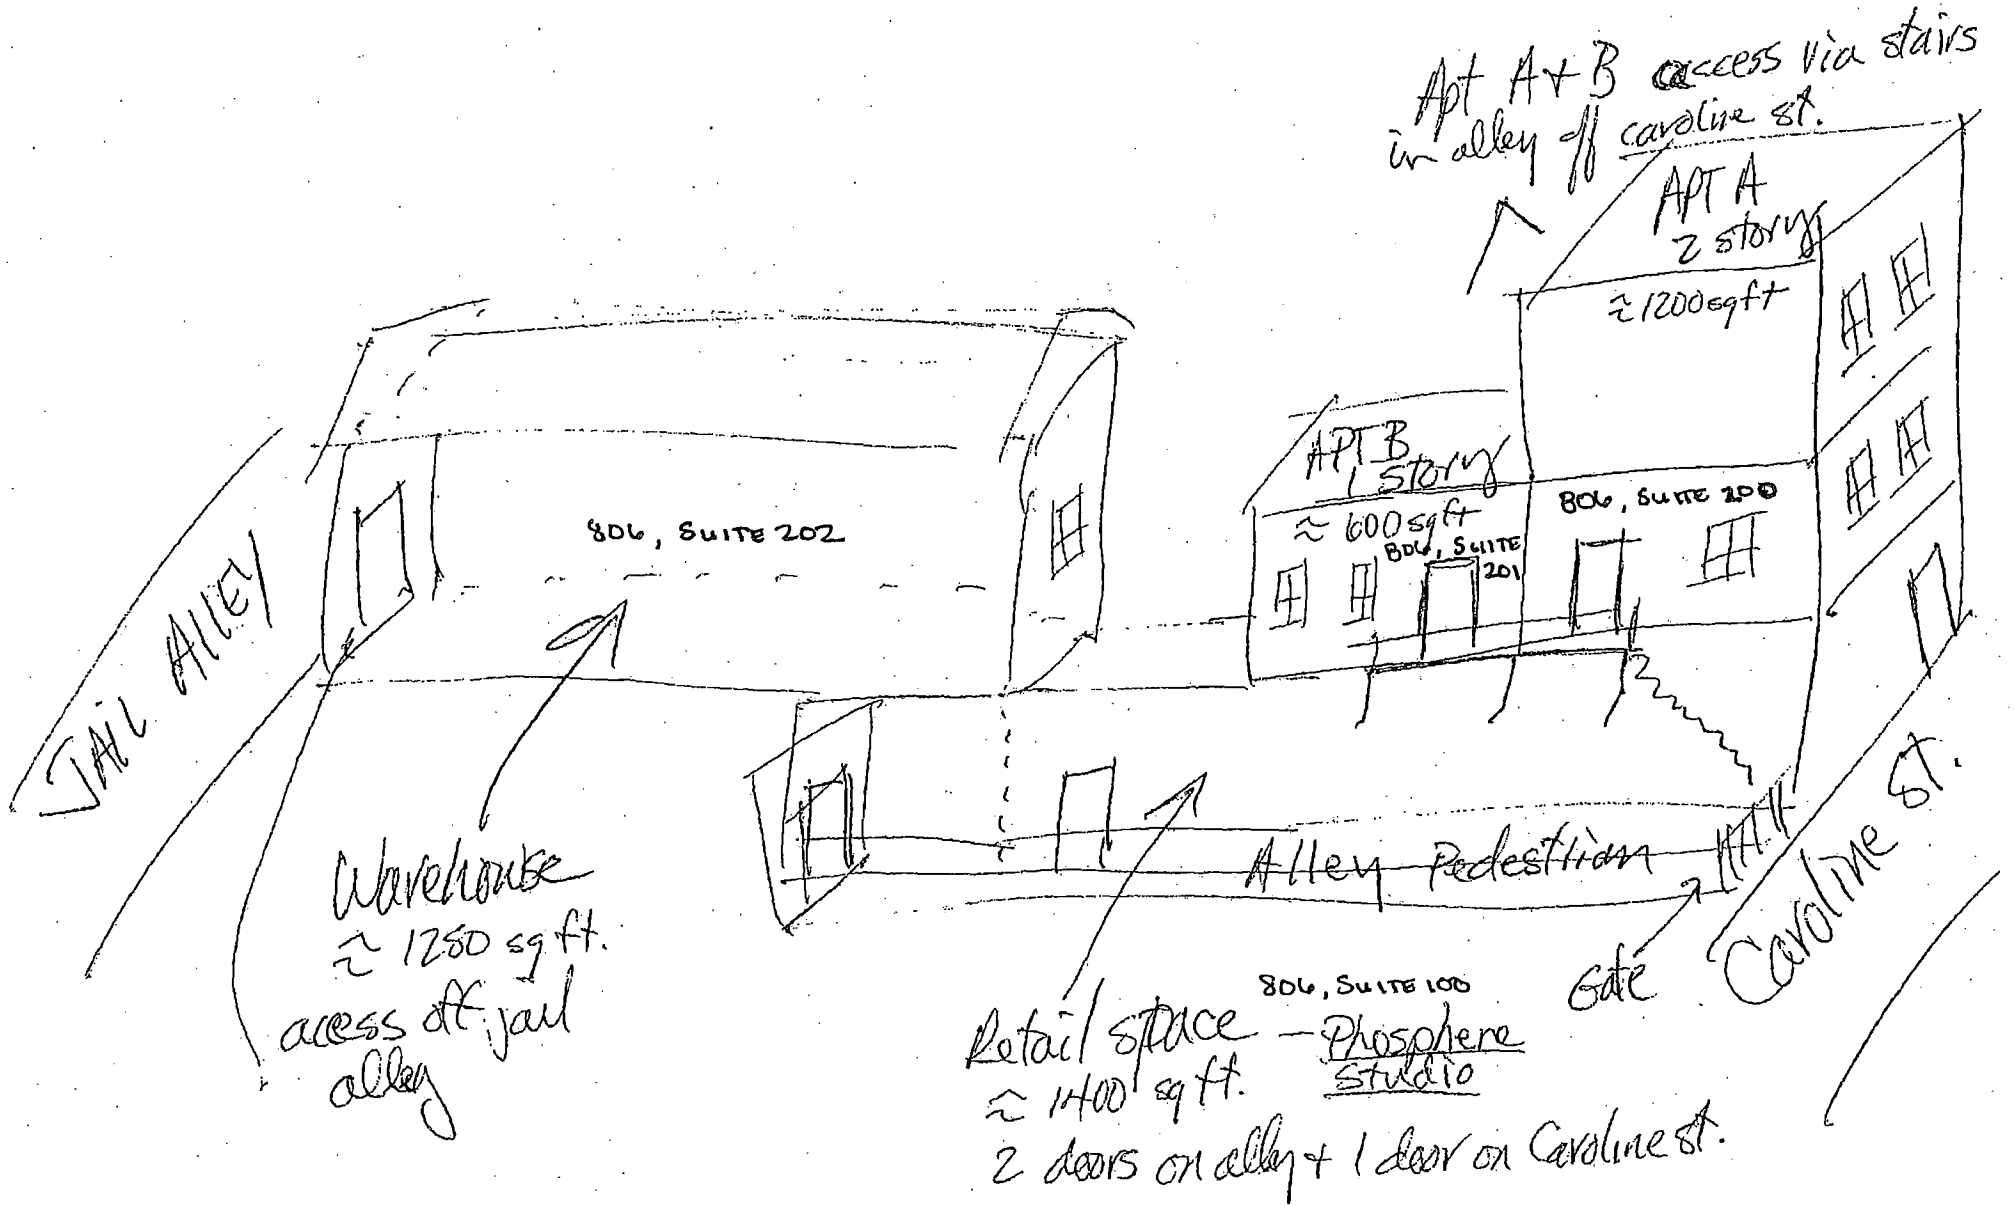 Apt A + B access via stairs
in alley off Caroline St.
APT A
2 story
≈ 1200 sqft
APT B
1 story
≈ 600 sqft
806, SUITE 200
806, SUITE
201
806, SUITE 202
JAIL ALLEY
Warehouse
≈ 1250 sq ft.
access off jail
alley
Alley Pedestrian
Gate
Caroline St.
806, SUITE 100
Retail space – Phosphere
Studio
≈ 1400 sq ft.
2 doors on alley + 1 door on Caroline St.